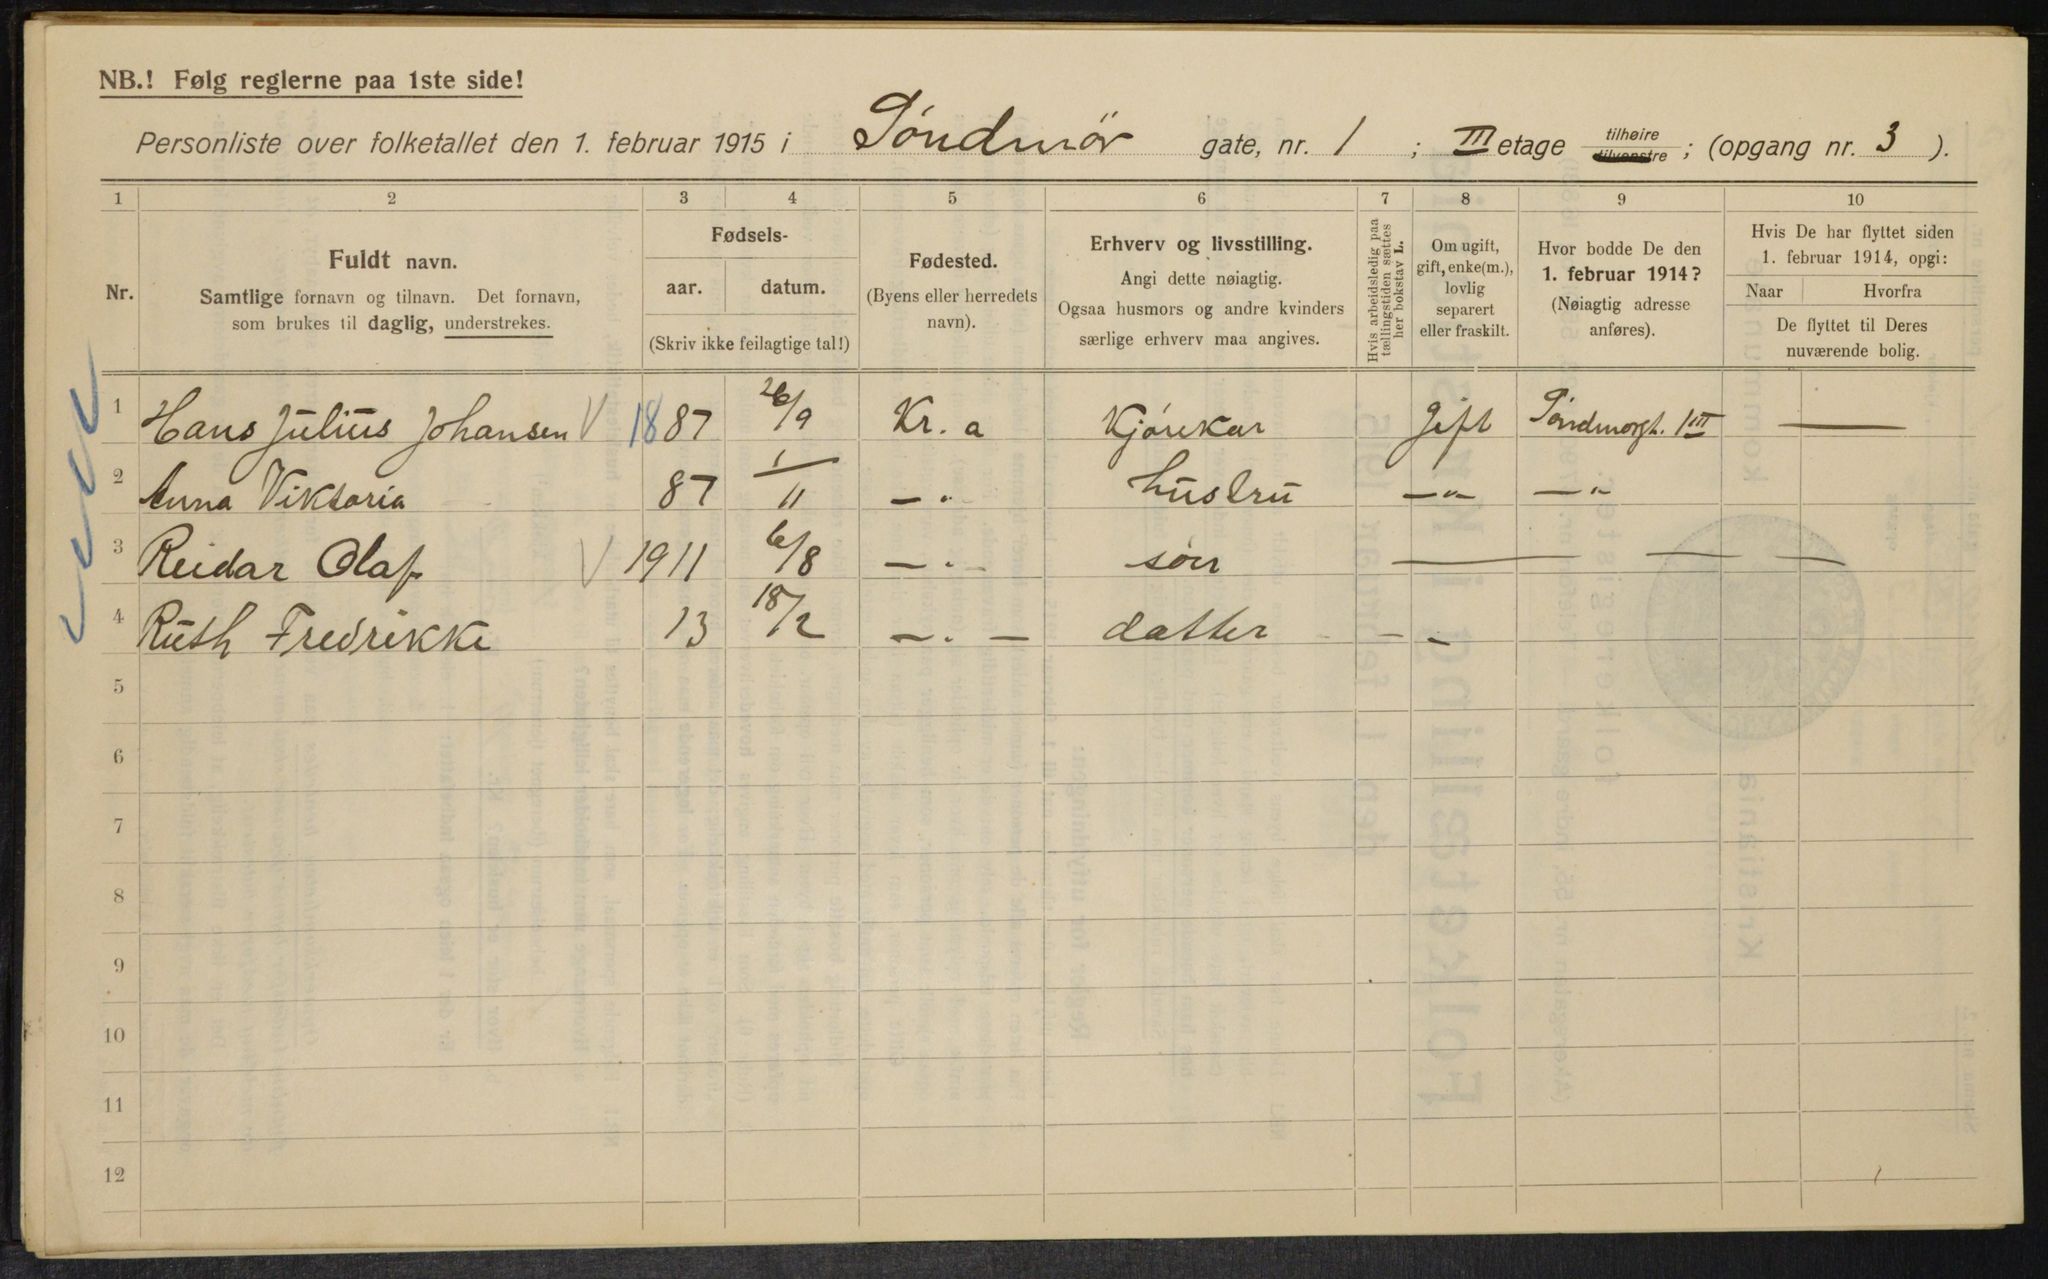 NB.! Følg reglerne paa 1ste side!
Personliste over folketallet den 1. februar 1915 i Söndmör gate, nr. 1 ; III etage tilhøire tilvenstre ; (opgang nr. 3 ).
1 2 3 4 5 6 7 8 9 10
Nr.
Fuldt navn.
Samtlige fornavn og tilnavn. Det fornavn,
som brukes til daglig, understrekes.
Fødsels-
aar. datum.
(Skriv ikke feilagtige tal!)
Fødested.
(Byens eller herredets
navn).
Erhverv og livsstilling.
Angi dette nøiagtig.
Ogsaa husmors og andre kvinders
særlige erhverv maa angives.
Hvis arbeidsledig paa
tællingstiden sættes
her bokstav L.
Om ugift,
gift, enke(m.),
lovlig
separert
eller fraskilt.
Hvor bodde De den
1. februar 1914?
(Nøiagtig adresse
anføres).
Hvis De har flyttet siden
1. februar 1914, opgi:
Naar Hvorfra
De flyttet til Deres
nuværende bolig.
1 Hans Julius Johansen V 1887 26/9 Kr. a Kjörekar gift Söndmørgt. 1 III —
2 Anna Viktoria 87 1/11 —"— hustru —"— —"—
3 Reidar Olaf V 1911 6/8 —"— sön — — —
4 Ruth Fredrikke 13 18/2 —"— datter — —
5
6
7
8
9
10
11
12